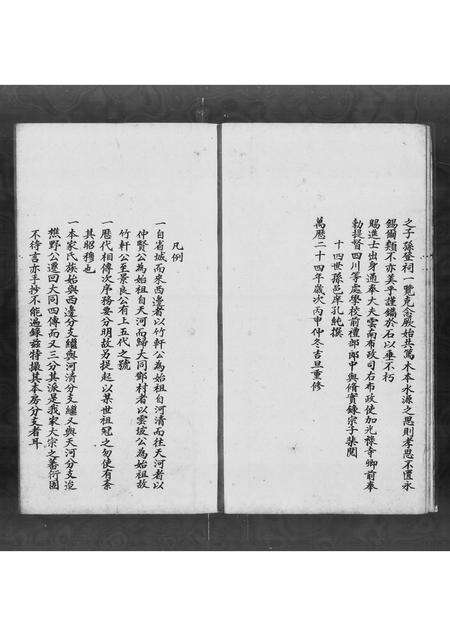 之子孫登祠一覽克念厥始共篤木本水源之思則孝思不匱永
錫爾類不亦美乎謹鐫於石以垂不朽
賜進士出身通奉大夫雲南布政司右布政使加光祿寺卿前奉
勅提督四川等處學校前禮部郎中與脩實錄宗子榮閱
十四世孫邑庠孔純撰
萬歷二十四年歲次丙申仲冬吉旦重修
凡例
一自省城而來西邊者以竹軒公為始祖自河清而往天河者以
仲賢公為始祖自天河而歸大同鄧村者以雲坡公為始祖故
竹軒公至景良公有上五代之號
一歷代相傳次序務要分明故另提起以某世祖冠之勿使有紊
其昭穆也
一本家氏族始與西邊分支繼與河清分支繼又與天河分支迄
樵野公遷回大同四傳而又三分其派是我家大宗之蕃衍固
不待言亦手抄不能遍錄茲特撮其本房分支者耳